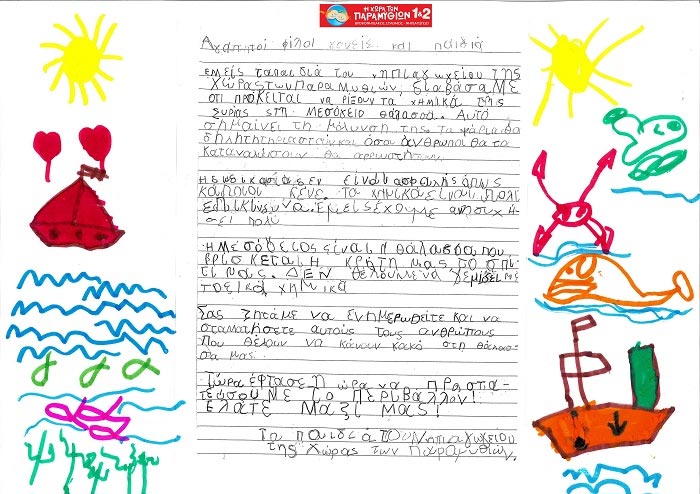 Η ΧΩΡΑ ΤΩΝ
ΠΑΡΑΜΥΘΙΩΝ 1&2
Αγαπητοί φίλοι γονείς και παιδιά
εμείς τα παιδιά του νηπιαγωγείου της
Χώρας των Παραμυθιών, διαβάσαμε
ότι πρόκειται να ρίξουν τα χημικά της
Συρίας στη μεσόγειο θάλασσα. Αυτό
σημαίνει τη μόλυνση της. Τα ψάρια θα
δηλητηριαστούν και όσοι άνθρωποι θα τα
καταναλώσουν θα αρρωστήσουν.
η διαδικασία δεν είναι ασφαλής όπως
κάποιοι λένε. Τα χημικά είναι πολύ
επικίνδυνα. Εμείς έχουμε ανησυχή-
σει πολύ
η μεσόγειος είναι η θάλασσα που
βρίσκεται η Κρήτη μας το σπί-
τι μας. ΔΕΝ θέλουμε να γεμίσει με
τοξικά χημικά
Σας ζητάμε να ενημερωθείτε και να
σταματήσετε αυτούς τους ανθρώπους
που θέλουν να κάνουν κακό στη θάλασ-
σα μας.
Τώρα έφτασε η ώρα να προστα-
τεύσουΜΕ το Περιβάλλον!
ΕΛΑΤΕ ΜΑΖΙ ΜΑΣ!
Τα παιδιά του Νηπιαγωγείου
της Χώρας των Παραμυθιών.